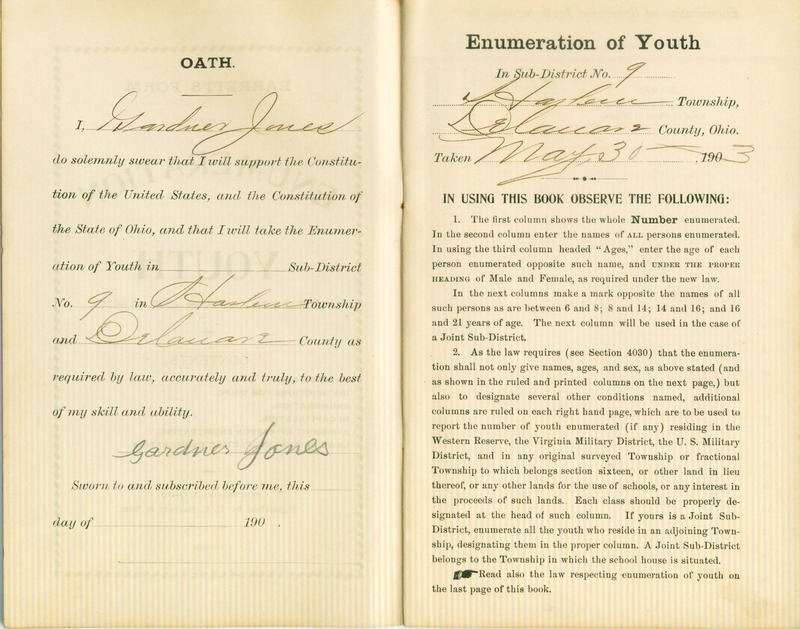 OATH.
I, Gardner Jones
do solemnly swear that I will support the Constitu-
tion of the United States, and the Constitution of
the State of Ohio, and that I will take the Enumer-
ation of Youth in Sub-District
No. 9 in Harlem Township
and Delaware County as
required by law, accurately and truly, to the best
of my skill and ability.
Gardner Jones
Sworn to and subscribed before me, this
day of 190 .
Enumeration of Youth
In Sub-District No. 9
Harlem Township,
Delaware County, Ohio.
Taken May 30 , 1903
IN USING THIS BOOK OBSERVE THE FOLLOWING:
1. The first column shows the whole Number enumerated.
In the second column enter the names of ALL persons enumerated.
In using the third column headed "Ages," enter the age of each
person enumerated opposite such name, and UNDER THE PROPER
HEADING of Male and Female, as required under the new law.
In the next columns make a mark opposite the names of all
such persons as are between 6 and 8; 8 and 14; 14 and 16; and 16
and 21 years of age. The next column will be used in the case of
a Joint Sub-District.
2. As the law requires (see Section 4030) that the enumera-
tion shall not only give names, ages, and sex, as above stated (and
as shown in the ruled and printed columns on the next page,) but
also to designate several other conditions named, additional
columns are ruled on each right hand page, which are to be used to
report the number of youth enumerated (if any) residing in the
Western Reserve, the Virginia Military District, the U. S. Military
District, and in any original surveyed Township or fractional
Township to which belongs section sixteen, or other land in lieu
thereof, or any other lands for the use of schools, or any interest in
the proceeds of such lands. Each class should be properly de-
signated at the head of such column. If yours is a Joint Sub-
District, enumerate all the youth who reside in an adjoining Town-
ship, designating them in the proper column. A Joint Sub-District
belongs to the Township in which the school house is situated.
Read also the law respecting enumeration of youth on
the last page of this book.